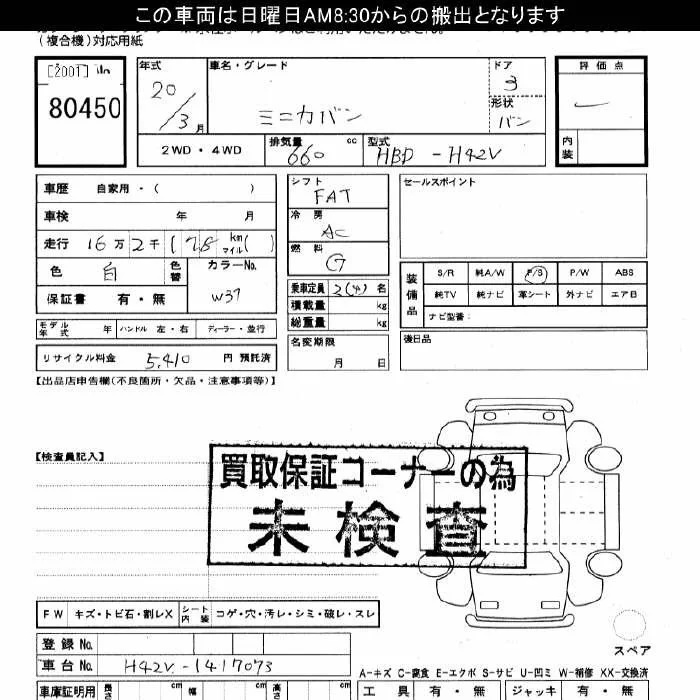 この車両は日曜日AM8:30からの搬出となります
(複合機)対応用紙
[2001]
80450
年式 20/3月
車名・グレード ミニカバン
ドア 3
形状 バン
評価点 ―
内装
2WD・4WD
排気量 660 cc
型式 HBD-H42V
車歴 自家用・( )
車検 年 月
走行 16万2千178 km マイル( )
色 白 色替
カラーNo. W37
保証書 有・無
モデル年式 年 ハンドル 左・右 ディーラー・並行
リサイクル料金 5,410 円 預託済
シフト FAT
冷房 AC
燃料 G
乗車定員 2(4) 名
積載量 kg
総重量 kg
名変期限 月 日
セールスポイント
装備品
S/R 純A/W P/S P/W ABS
純TV 純ナビ 革シート 外ナビ エアB
ナビ型番:
後日品
【出品店申告欄(不良箇所・欠品・注意事項等)】
【検査員記入】
買取保証コーナーの為
未検査
FW キズ・トビ石・割レX シート内装 コゲ・穴・汚レ・シミ・破レ・スレ
登録No.
車台No. H42V-1417073
スペア
A-キズ C-腐食 E-エクボ S-サビ U-凹ミ W-補修 XX-交換済
車庫証明用 長さ cm 幅 cm 高さ cm
工具 有・無 ジャッキ 有・無